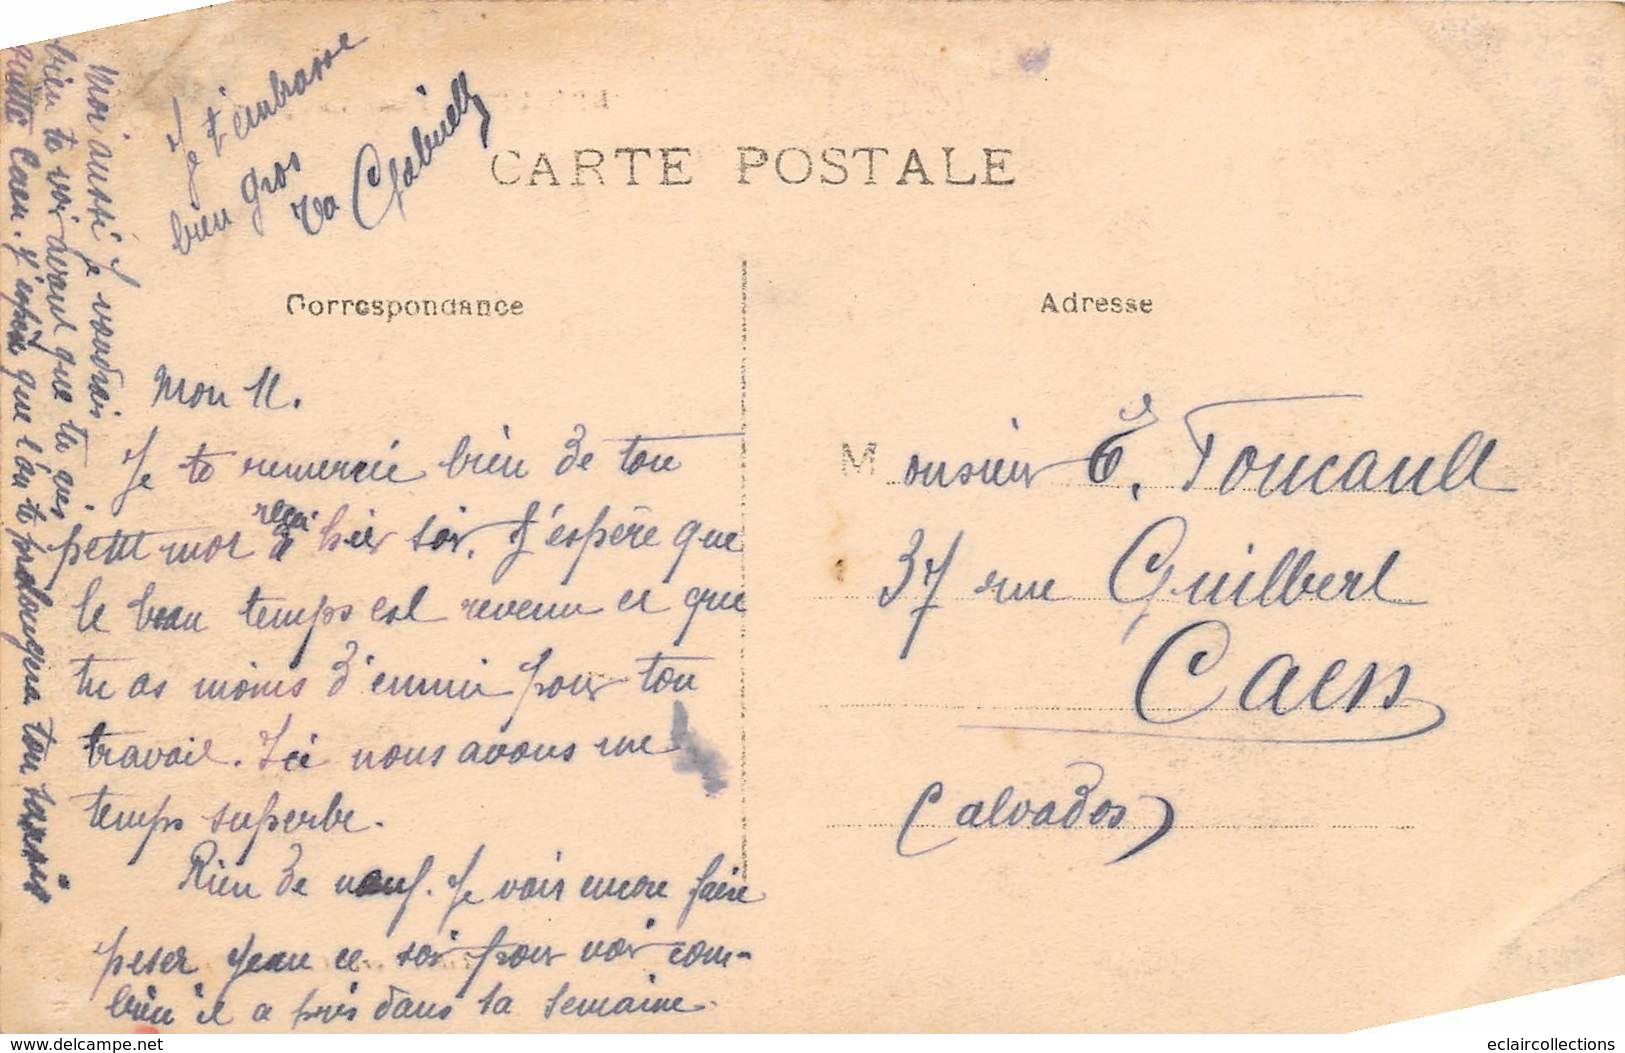 CARTE POSTALE
Correspondance
Mon 
Je te remercie bien de ton
petit mot reçu hier soir. J'espère que
le beau temps est revenu et que
tu as moins d'ennui pour ton
travail. Ici nous avons un
temps superbe.
Rien de neuf. Je vais encore faire
peser Jean ce soir pour voir com-
bien il a pris dans sa semaine.
Moi aussi je voudrais
bien te voir avant que tu aies
quitté Caen. J'espère que l'on te prolongera ton sursis
Je t'embrasse
bien gros
Ta Gabrielle
Adresse
Monsieur E. Foucault
37 rue Guilbert
Caen
(Calvados)
eclaircollections